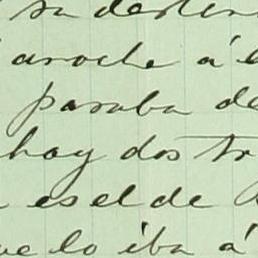 su destin
anoche á e
pasaba de
hay dos tr
es el de
ue lo iba á